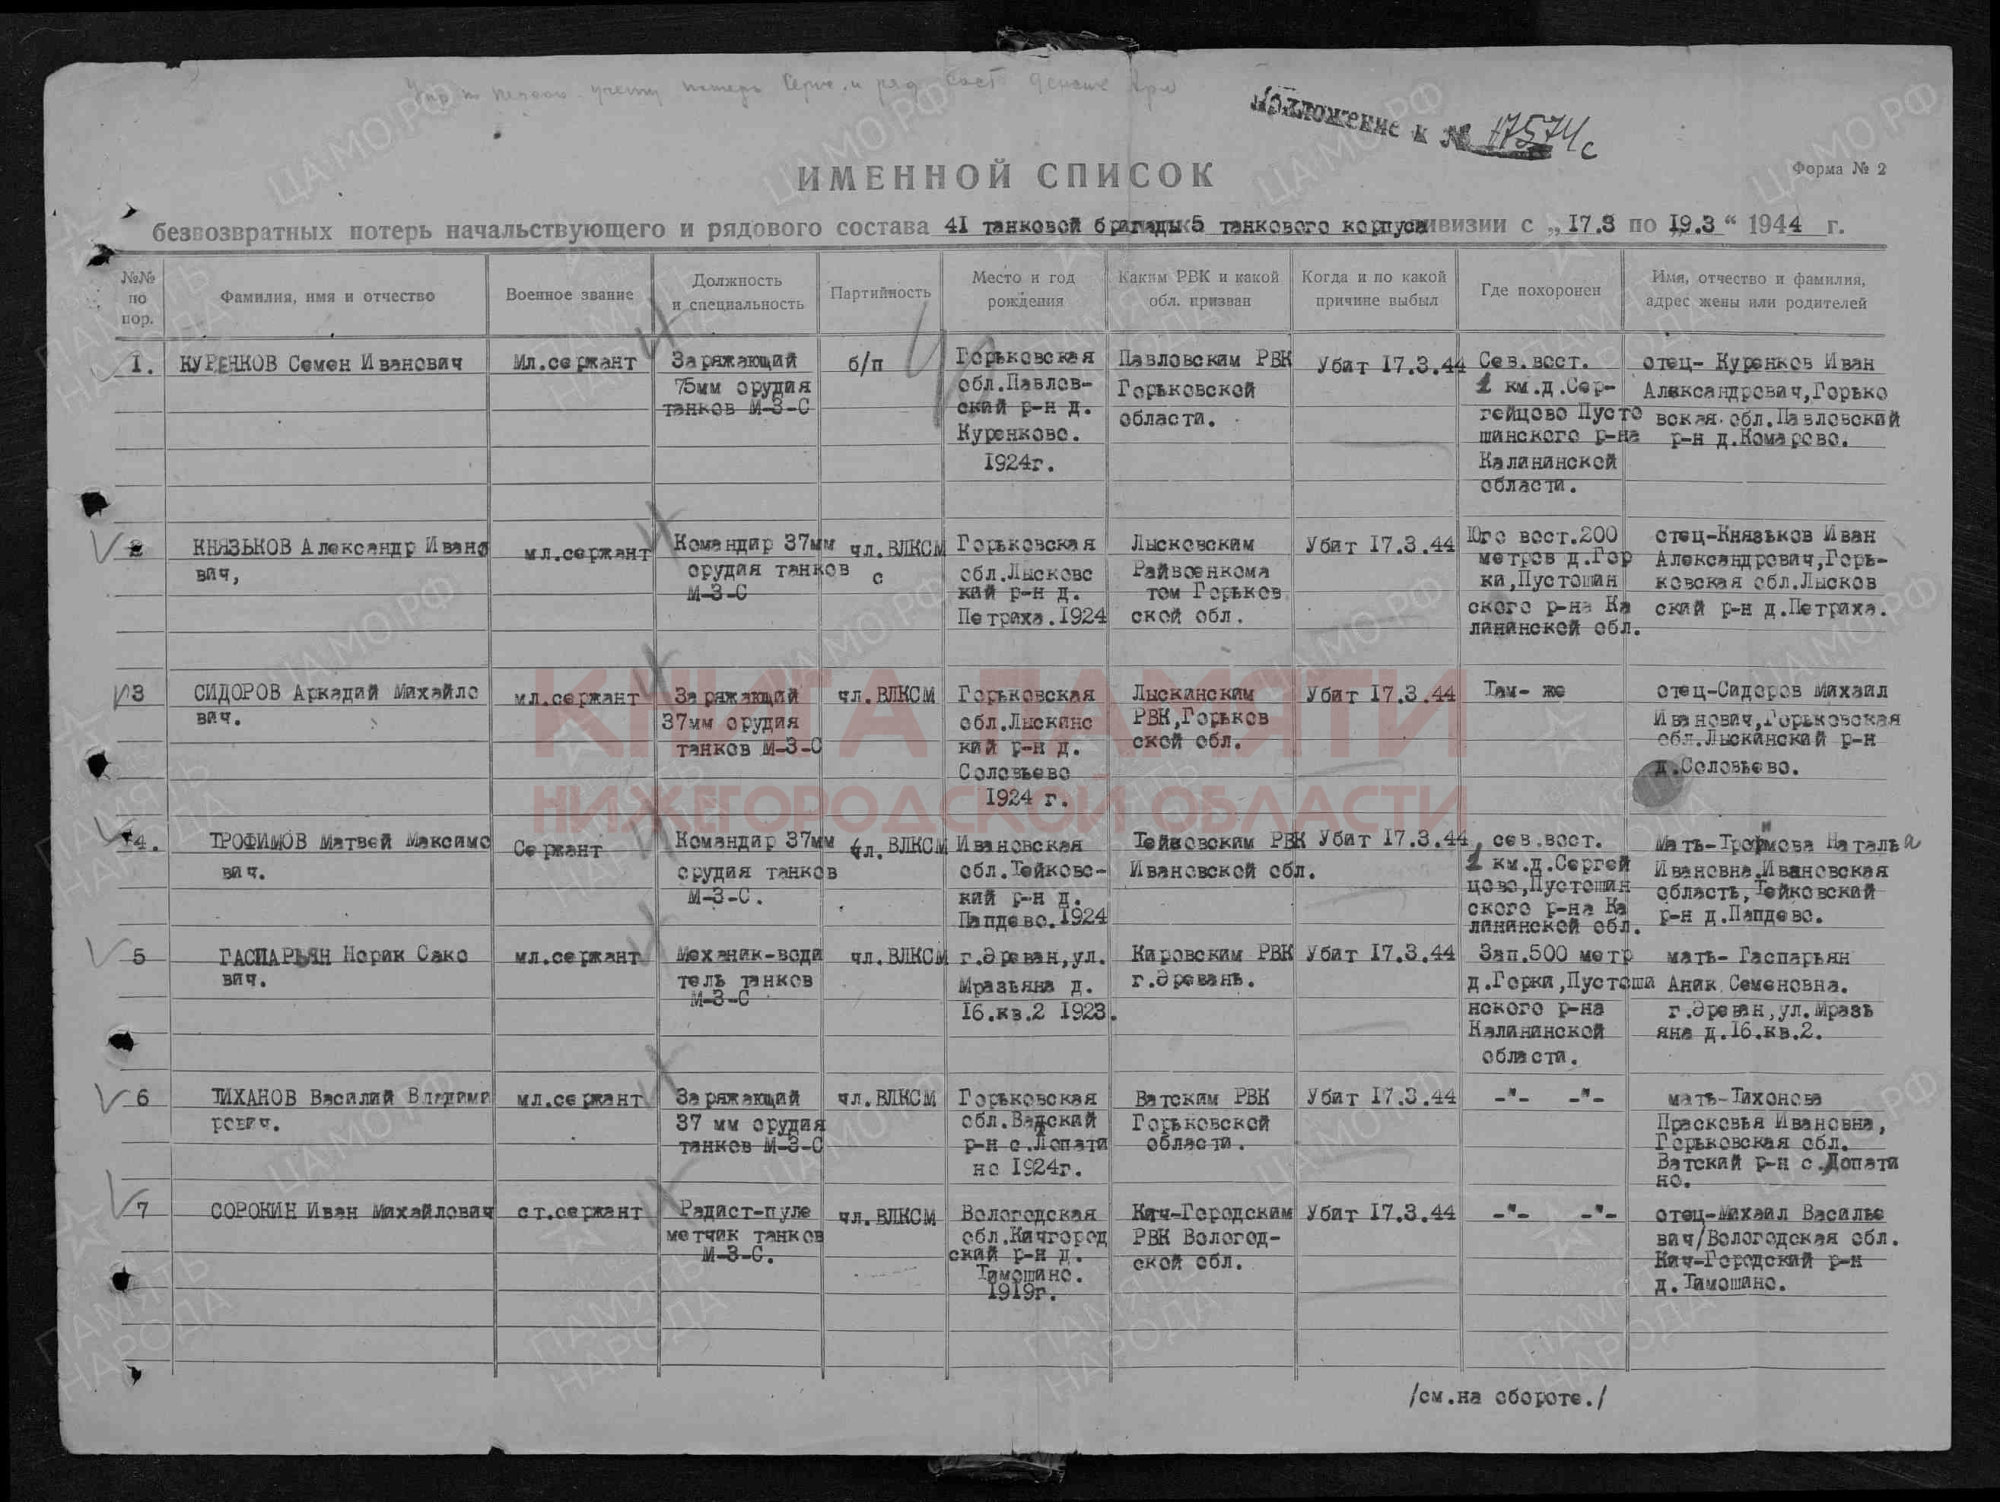 Приложение к № 17574с
ИМЕННОЙ СПИСОК
Форма № 2
безвозвратных потерь начальствующего и рядового состава 41 танковой бригады 5 танкового корпуса дивизии с „17.3 по 19.3“ 1944 г.
№№ по пор.
Фамилия, имя и отчество
Военное звание
Должность и специальность
Партийность
Место и год рождения
Каким РВК и какой обл. призван
Когда и по какой причине выбыл
Где похоронен
Имя, отчество и фамилия, адрес жены или родителей
1.
КУРЕНКОВ Семен Иванович
Мл.сержант
Заряжающий
75мм орудия
танков М-3-С
б/п
Горьковская
обл.Павлов-
ский р-н д.
Куренково.
1924г.
Павловским РВК
Горьковской
области.
Убит 17.3.44
Сев.вост.
1 км.д.Сер-
гейцово Пусто
шинского р-на
Калининской
области.
отец- Куренков Иван
Александрович,Горько
вская обл.Павловский
р-н д.Комарово.
2
КНЯЗЬКОВ Александр Ивано
вич,
мл.сержант
Командир 37мм
орудия танков
М-3-С
чл.ВЛКСМ
с
Горьковская
обл.Лысковс
кий р-н д.
Петриха.1924
Лысковским
Райвоенкома
том Горьков
ской обл.
Убит 17.3.44
Юго вост.200
метров д.Гор
ки,Пустошин
ского р-на Ка
лининской обл.
отец-Князьков Иван
Александрович,Горь-
ковская обл.Лысков
ский р-н д.Петриха.
3
СИДОРОВ Аркадий Михайло
вич.
мл.сержант
Заряжающий
37мм орудия
танков М-3-С
чл.ВЛКСМ
Горьковская
обл.Лыскинс
кий р-н д.
Соловьево
1924 г.
Лыскинским
РВК,Горьков
ской обл.
Убит 17.3.44
Там- же
отец-Сидоров Михаил
Иванович,Горьковская
обл.Лыскинский р-н
д.Соловьево.
4.
ТРОФИМОВ Матвей Максимо
вич.
Сержант
Командир 37мм
орудия танков
М-3-С.
чл.ВЛКСМ
Ивановская
обл.Тейковс-
кий р-н д.
Папдево.1924
Тейковским РВК
Ивановской обл.
Убит 17.3.44
сев.вост.
1 км.д.Сергей
цово,Пустошин
ского р-на Ка
лининской обл.
Мать-Трофимова Наталья
Ивановна,Ивановская
область,Тейковский
р-н д.Папдево.
5
ГАСПАРЬЯН Норик Сако
вич.
мл.сержант
Механик-води
тель танков
М-3-С
чл.ВЛКСМ
г.Эреван,ул.
Мразьяна д.
16.кв.2 1923.
Кировским РВК
г.Эревань.
Убит 17.3.44
Зап.500 метр
д.Горки,Пустоши
нского р-на
Калининской
области.
мать- Гаспарьян
Аник Семеновна.
г.Эреван,ул.Мразь
яна д.16.кв.2.
6
ТИХАНОВ Василий Владими
рович.
мл.сержант
Заряжающий
37 мм орудия
танков М-3-С
чл.ВЛКСМ
Горьковская
обл.Вадский
р-н с.Лопати
но 1924г.
Ватским РВК
Горьковской
области.
Убит 17.3.44
-"- -"-
мать-Тихонова
Прасковья Ивановна,
Горьковская обл.
Ватский р-н с.Лопати
но.
7
СОРОКИН Иван Михайлович
ст.сержант
Радист-пуле
метчик танков
М-3-С.
чл.ВЛКСМ
Вологодская
обл.Кичгород
ский р-н д.
Тимошино.
1919г.
Кич-Городским
РВК Вологод-
ской обл.
Убит 17.3.44
-"- -"-
отец-Михаил Василье
вич/Вологодская обл.
Кич-Городский р-н
д.Тимошино.
/см.на обороте./
КНИГА ПАМЯТИ
НИЖЕГОРОДСКОЙ ОБЛАСТИ
ЦАМО.РФ
ПАМЯТЬ НАРОДА